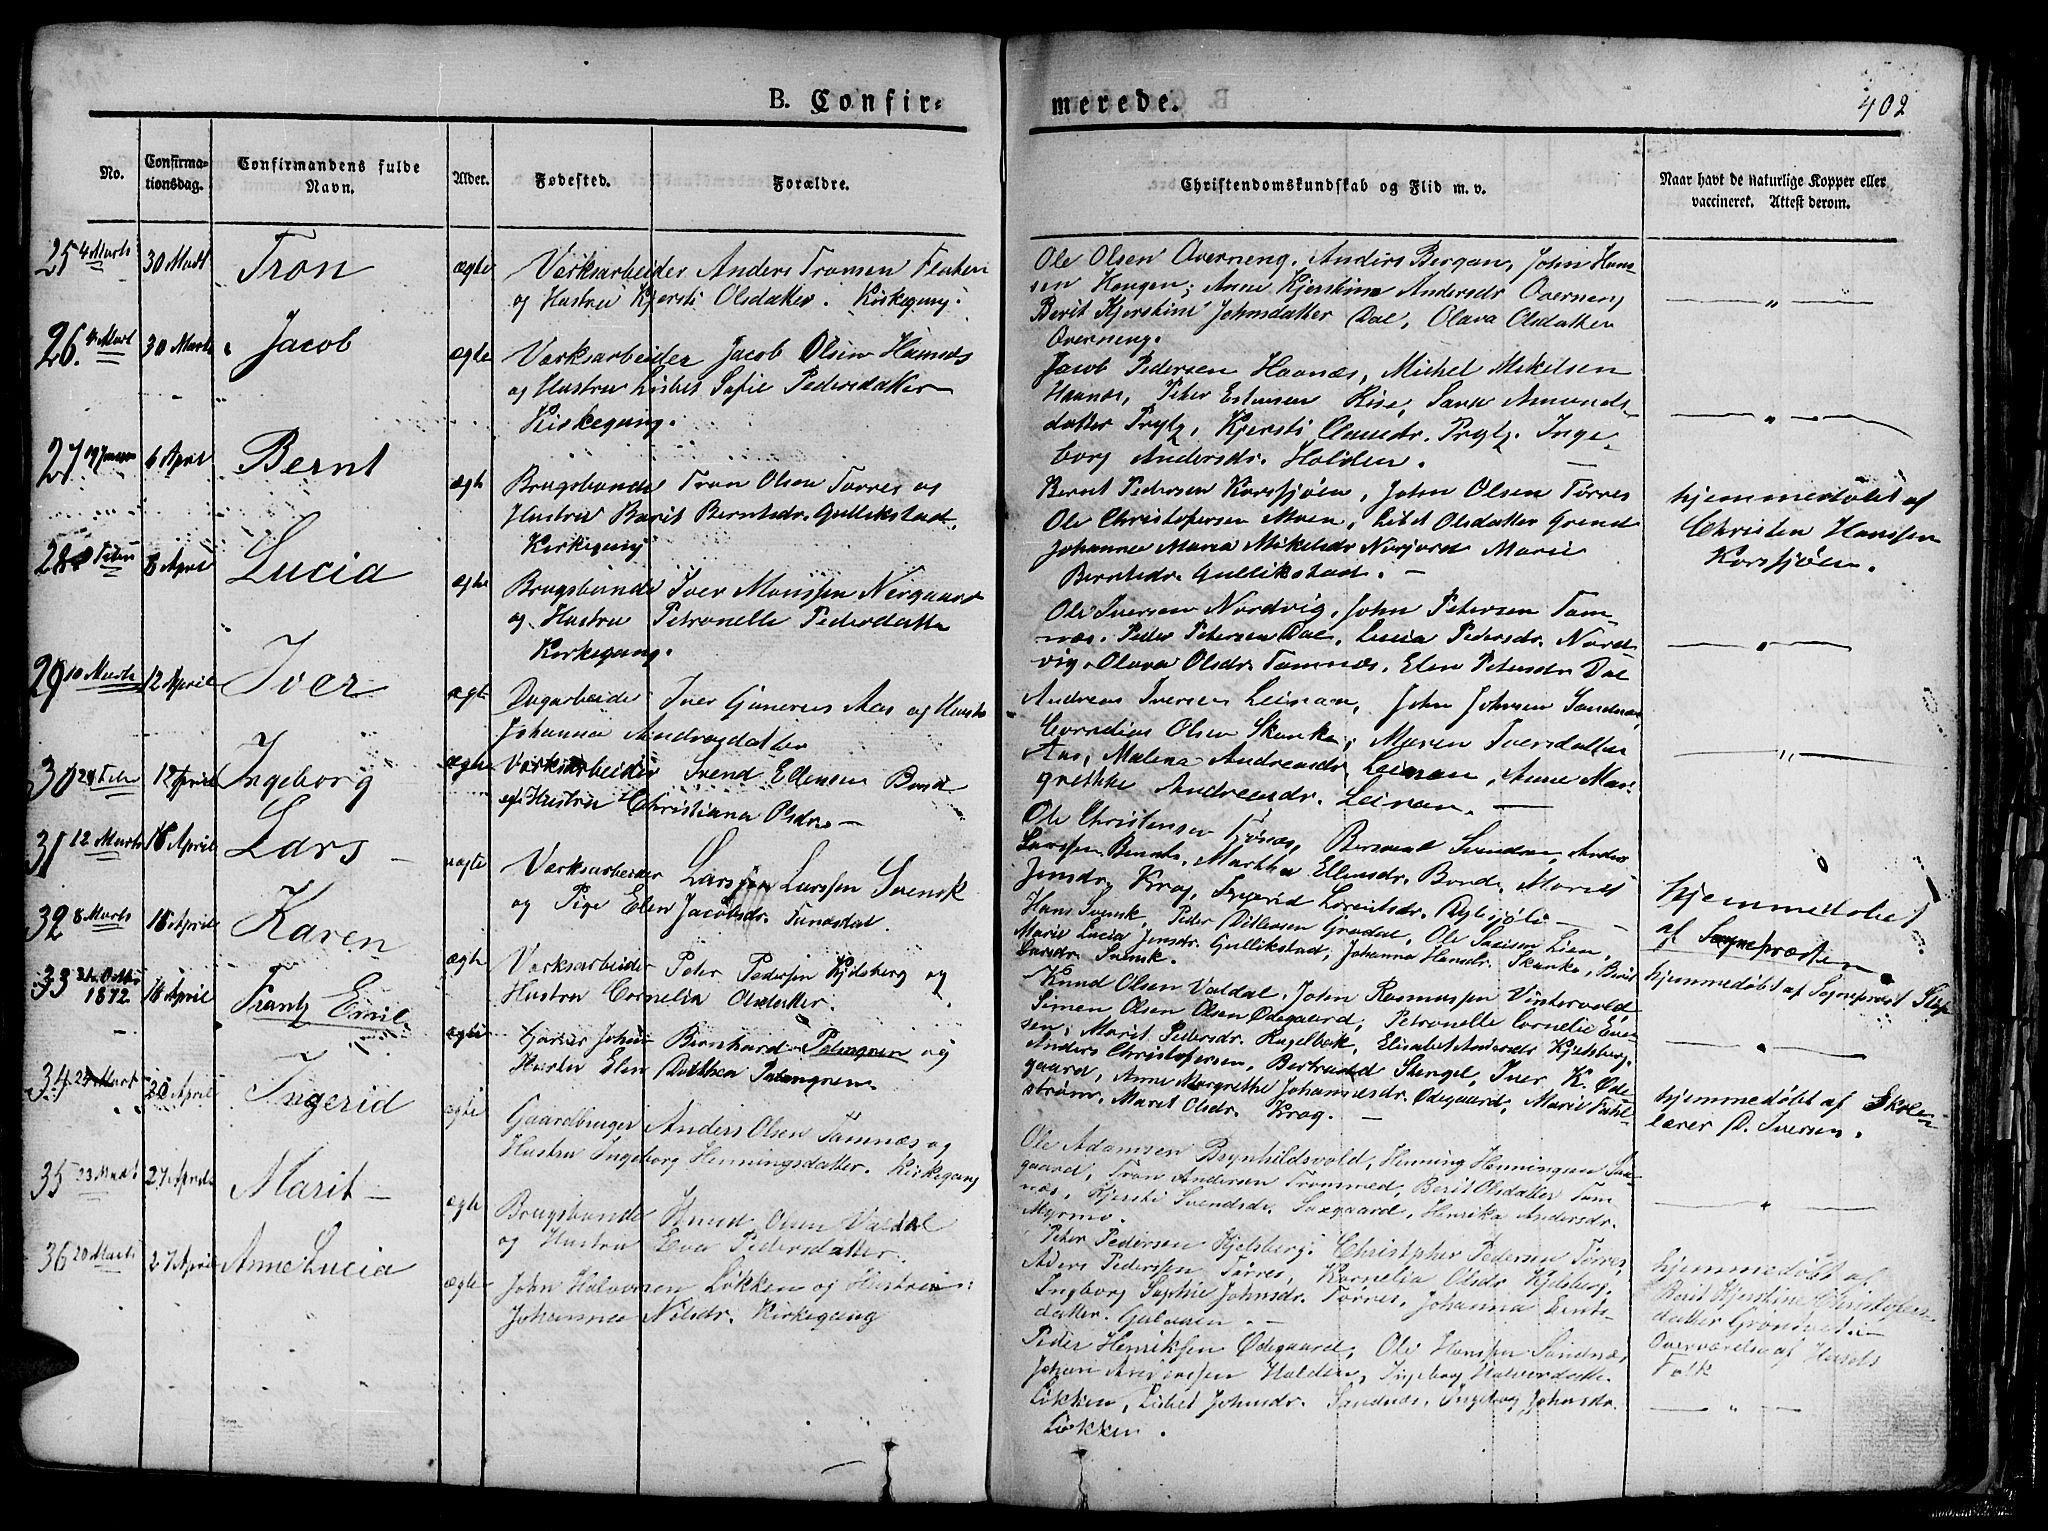 B. Confir-
merede.
402
No.
Confirma-
tionsdag.
Confirmandens fulde
Navn.
Alder.
Fødested.
Forældre.
Christendomskundskab og Flid m. v.
Naar havt de naturlige Kopper eller
vaccineret. Attest derom.
25 4 Marts 30 Marts Tron ægte Værksarbeider Anders Tronsen Flaten
og Hustru Kjersti Olsdatter. Kirkegang.
Ole Olsen Overneng, Anders Bergan, John Han-
sen Haugen; Anne Kjerstine Andersdr Overneng
Berit Kjerstine Johnsdatter Dal, Olava Olsdatter
Overneng.
26. 4 Marts 30 Marts Jacob ægte Værksarbeider Jacob Olsen Haanæs
og Hustru Lisbet Sofie Pedersdatter
Kirkegang.
Jacob Pedersen Haanæs, Michel Mikelsen
Haanæs, Peter Estensen Rise, Sara Amunds-
datter Prytz, Kjersti Clausdr. Prytz. Inge-
borg Andersdr. Holden.
27 6 April Bernt ægte Brugsbonde Tron Olsen Tørres og
Hustru Barit Berntsdr. Gullikstad.
Kirkegang
Bernt Pedersen Korssjøen, John Olsen Tørres
Ole Christofersen Moen, Lisbet Olsdatter Grend
Johanna Maria Mikelsdr Norjord Marie
Berntsdr. Gullikstad. —
hjemmedøbt af
Christen Hansen
Korssjøen.
28 Febru 8 April Lucia ægte Brugsbonde Iver Monssen Nergaard
og Hustru Petronelle Pedersdatte
Kirkegang.
Ole Iversen Nordvig, John Petersen Tam-
næs. Peder Petersen Dal, Lucia Pedersdr. Nord-
vig. Olava Olsdr. Tamnæs, Elen Petersdr Dal
29 10 Marts 12 April Iver ægte Dagarbeide Iver Gunerius Aas og Hustr
Johanna Andreasdatter
Andreas Iversen Leinan, John Johnsen Sandnæs,
Cornelius Olsen Skanke, Maren Iversdatter
Aas, Malena Andreasdr Leinan, Anne Mar-
grethe Andreasdr. Leinan. —
30 Febr 12 April Ingeborg ægte Værksarbeider Svend Ellensen Bond
og Hustru Christiana Olsdr. —
Ole Christensen Tyvnæs, Svendsen, Anders
Larssen Berntz, Martha Ellensdr. Bond, Marit
Jonsdr. Krog, Ingerid Lorentsdr. Rybsjöli —
31 12 Marts 16 April Lars — uægte Værksarbeider Lars Larssen Svensk
og Pige Elen Jacobsdr. Funesdal.
Hans Svensk, Peder Ditlevsen Grødal, Ole Lien,
Marie Lucia Jonsdr. Gullikstad, Johanna Hansdr. Skanke, Berit
Larsdr. Svensk.
hjemmedøbt
af Sognepræsten
32 8 Marts 16 April Karen ægte Værksarbeider Peter Pedersen Kjelsberg og
Hustru Cornelia Olsdatter.
Knud Olsen Valdal, John Rasmussen Vintervold,
Simen Olsen Ødegaard, Petronelle Cornelie Even-
sen, Marit Pedersdr. Kugelbæk, Elisabet Andersdr Kjelsberg.
hjemmedøbt af Sognepræst
33 31te Octbr
1872 16 April Frantz Emil ægte Garver Johan Bernhard Palmgren og
Hustru Elen Dorthea Palmgren.
Anders Christofersen, Bertrand Stengel, Iver K. Øde-
gaard, Anne Margrethe Johannesdr. Ødegaard, Marie Fahl-
strøm, Maret Olsdr. Krog. —
34 Mart 20 April Ingerid ægte Gaardbruger Anders Olsen Tamnæs og
Hustru Ingeborg Henningsdatter. Kirkegang
Ole Adamsen Brynhildsvold, Henning Henningsen Sax-
gaard, Tron Andersen Trommed, Berit Olsdatter Tam-
næs, Kjersti Svendsdr. Saxgaard, Henrika Andersdr.
Myrmo.
hjemmedøbt af Skole-
lærer D. Iversen.
35 23 Marts 27 April Marit — ægte Brugsbonde Knud Olsen Valdal
og Hustru Eva Pedersdatter.
Peter Pedersen Kjelsberg, Christopher Pedersen Tørres,
Anders Pederssen Tørres, Kornelia Olsdr Kjelsberg,
Ingborg Sophie Johnsdr. Tørres, Johanna Bernts-
datter. Galaaen. —
36 20 Marts 27 April Anne Lucia ægte John Halvorsen Løkken og Hustru:
Johanna Nilsdr. Kirkegang
Peder Henriksen Ødegaard, Ole Hanssen Sandnæs,
Johan Andersen Holden, Ingeborg Halvorsdatte
Løkken, Lisbet Johnsdr. Sandnæs, Ingeborg Johnsdr.
Løkken.
hjemmedøbt af
Berit Kjerstine Christofers-
datter Grønvet i
Overværelse af Husets
Folk